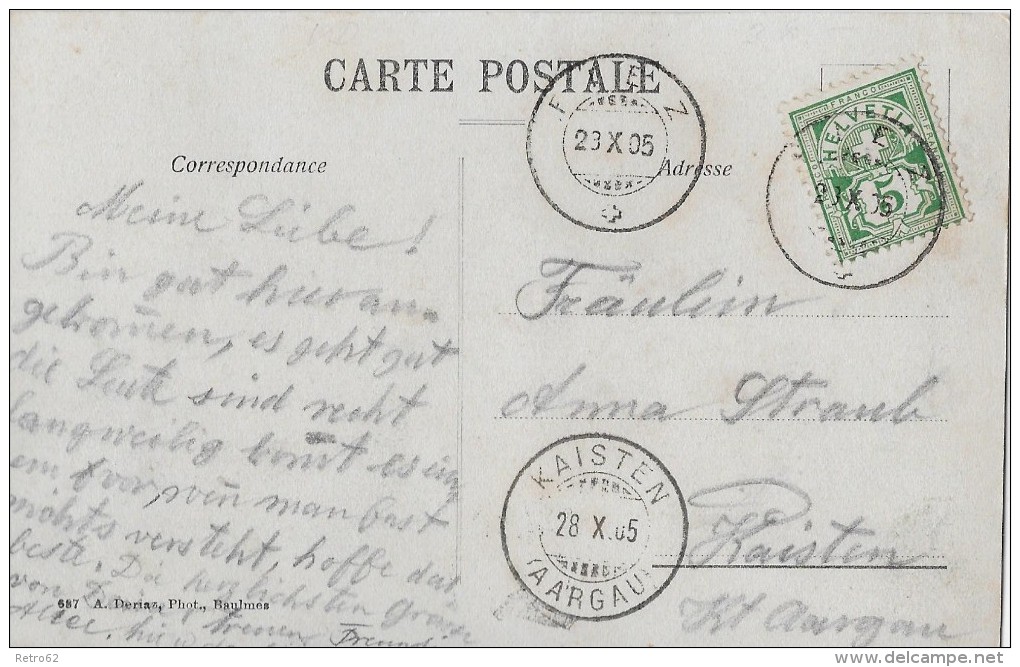 CARTE POSTALE
Correspondance
Adresse
F EZ
23 X 05
FRANCO
HELVETIA
5
23 X 05
Meine Liebe!
Bin gut hier an-
gekommen, es geht gut
die Leute sind recht
langweilig komt es ein
em vor, wen man fast
nichts versteht, hoffe das
beste. Die herzlichsten Grüsse
von Deiner treuen Freundin
Fräulein
Anna Straub
Kaisten
Kt Aargau
KAISTEN
28 X.05
(AARGAU)
687 A. Deriaz, Phot., Baulmes
Retro62
www.delcampe.net